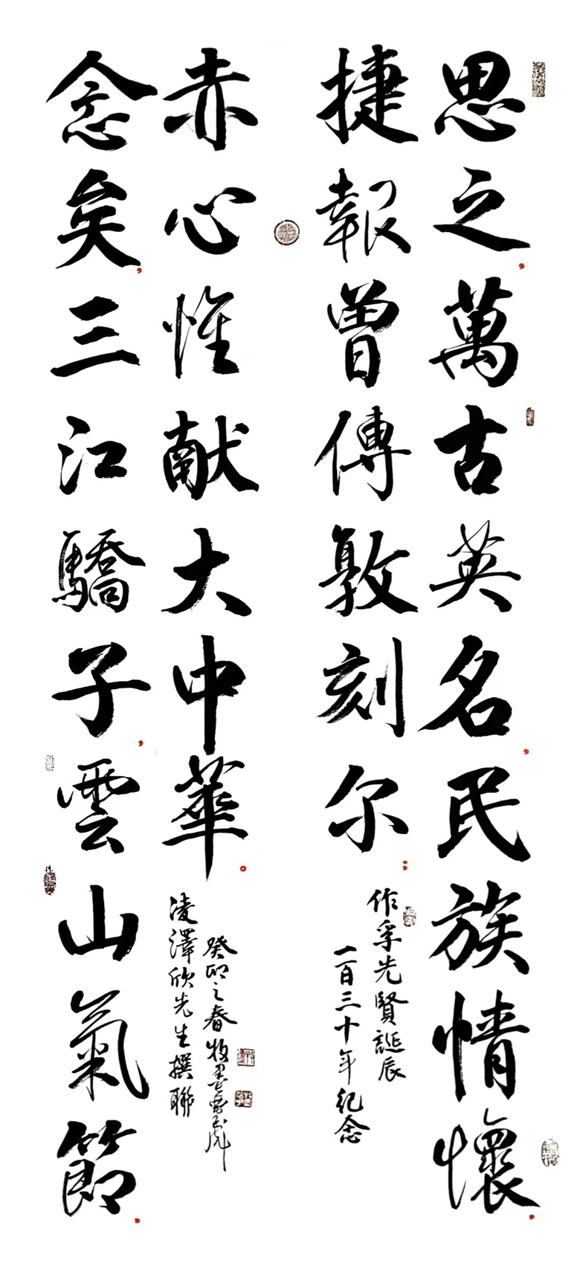 思之，萬古英名，民族情懷，
捷報曾傳敦刻尔；
作孚先賢誕辰
一百三十年紀念
念矣，三江驕子，雲山氣節，
赤心惟献大中華。
凌澤欣先生撰聯
癸卯之春